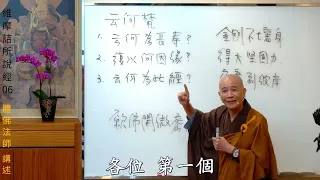 維摩詰所說經06
體佛法師 講述
云何梵
1. 云何為長壽?
2. 復以何因緣?
3. 云何為此經?
金剛不壞身
得大堅固力
究竟到彼岸
願佛開微密
各位 第一個